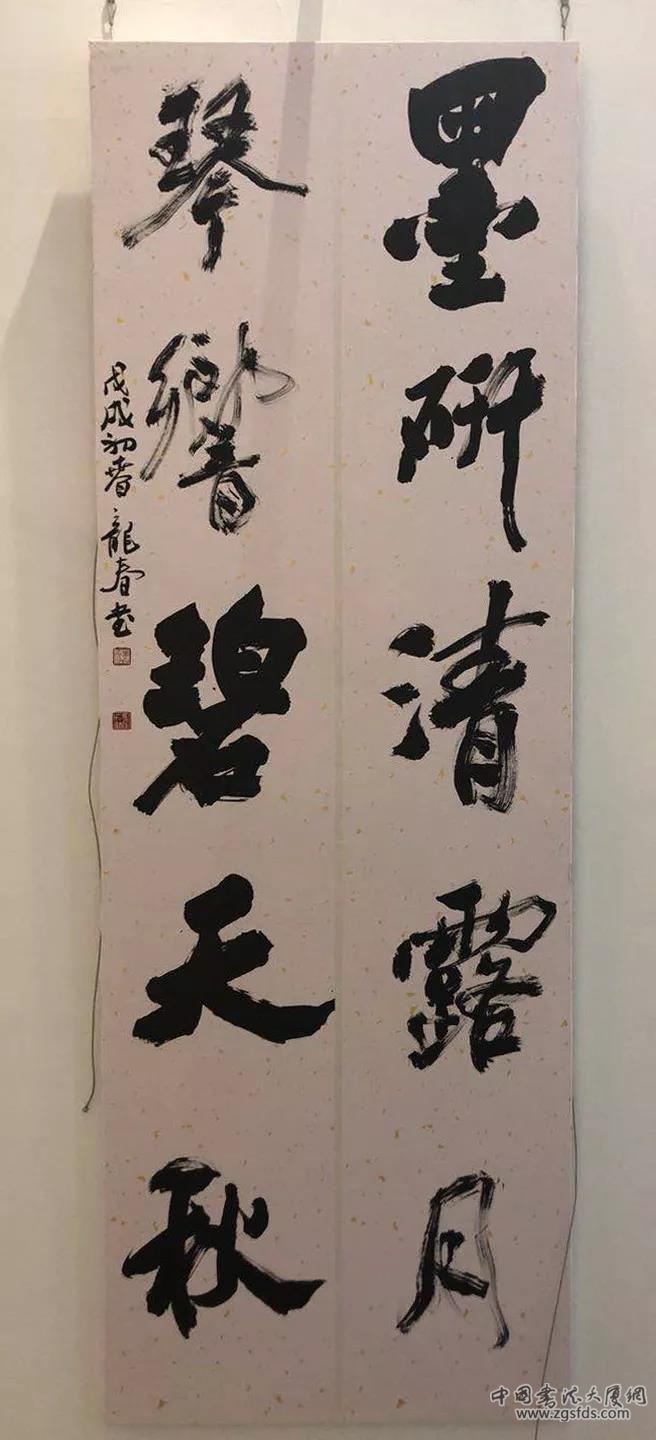 墨研清露月
琴響碧天秋
戊戌初春 龍春书
中国书法大厦网
www.zgsfds.com